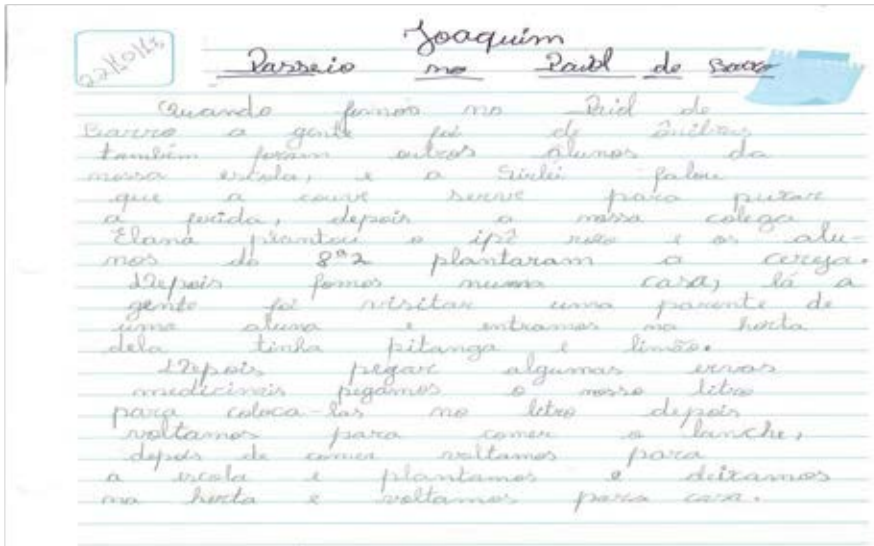 Joaquim
Passeio no Paiol de Barro
Quando fomos no Paiol de
Barro a gente foi de ônibus
também foram outros alunos da
nossa escola, e a falou
que a couve serve para puxar
a ferida, depois a nossa colega
Elana plantou o ipê roxo e os alu-
nos do 8º2 plantaram a cereja.
Depois fomos numa casa, lá a
gente foi visitar uma parente de
uma aluna e entramos na horta
dela tinha pitanga e limão.
Depois pegar algumas ervas
medicinais pegamos o nosso litro
para coloca-las no litro depois
voltamos para comer o lanche,
depois de comer voltamos para
a escola e plantamos e deixamos
na horta e voltamos para casa.